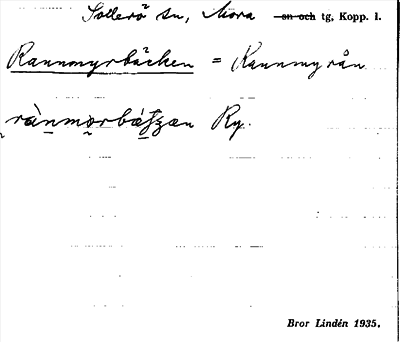 Sollerö sn, Mora sn och tg, Kopp. l.
Rannmyrbäcken = Rannmyrån
rànmorbä́ʃʒæn Ry.
Bror Lindén 1935.